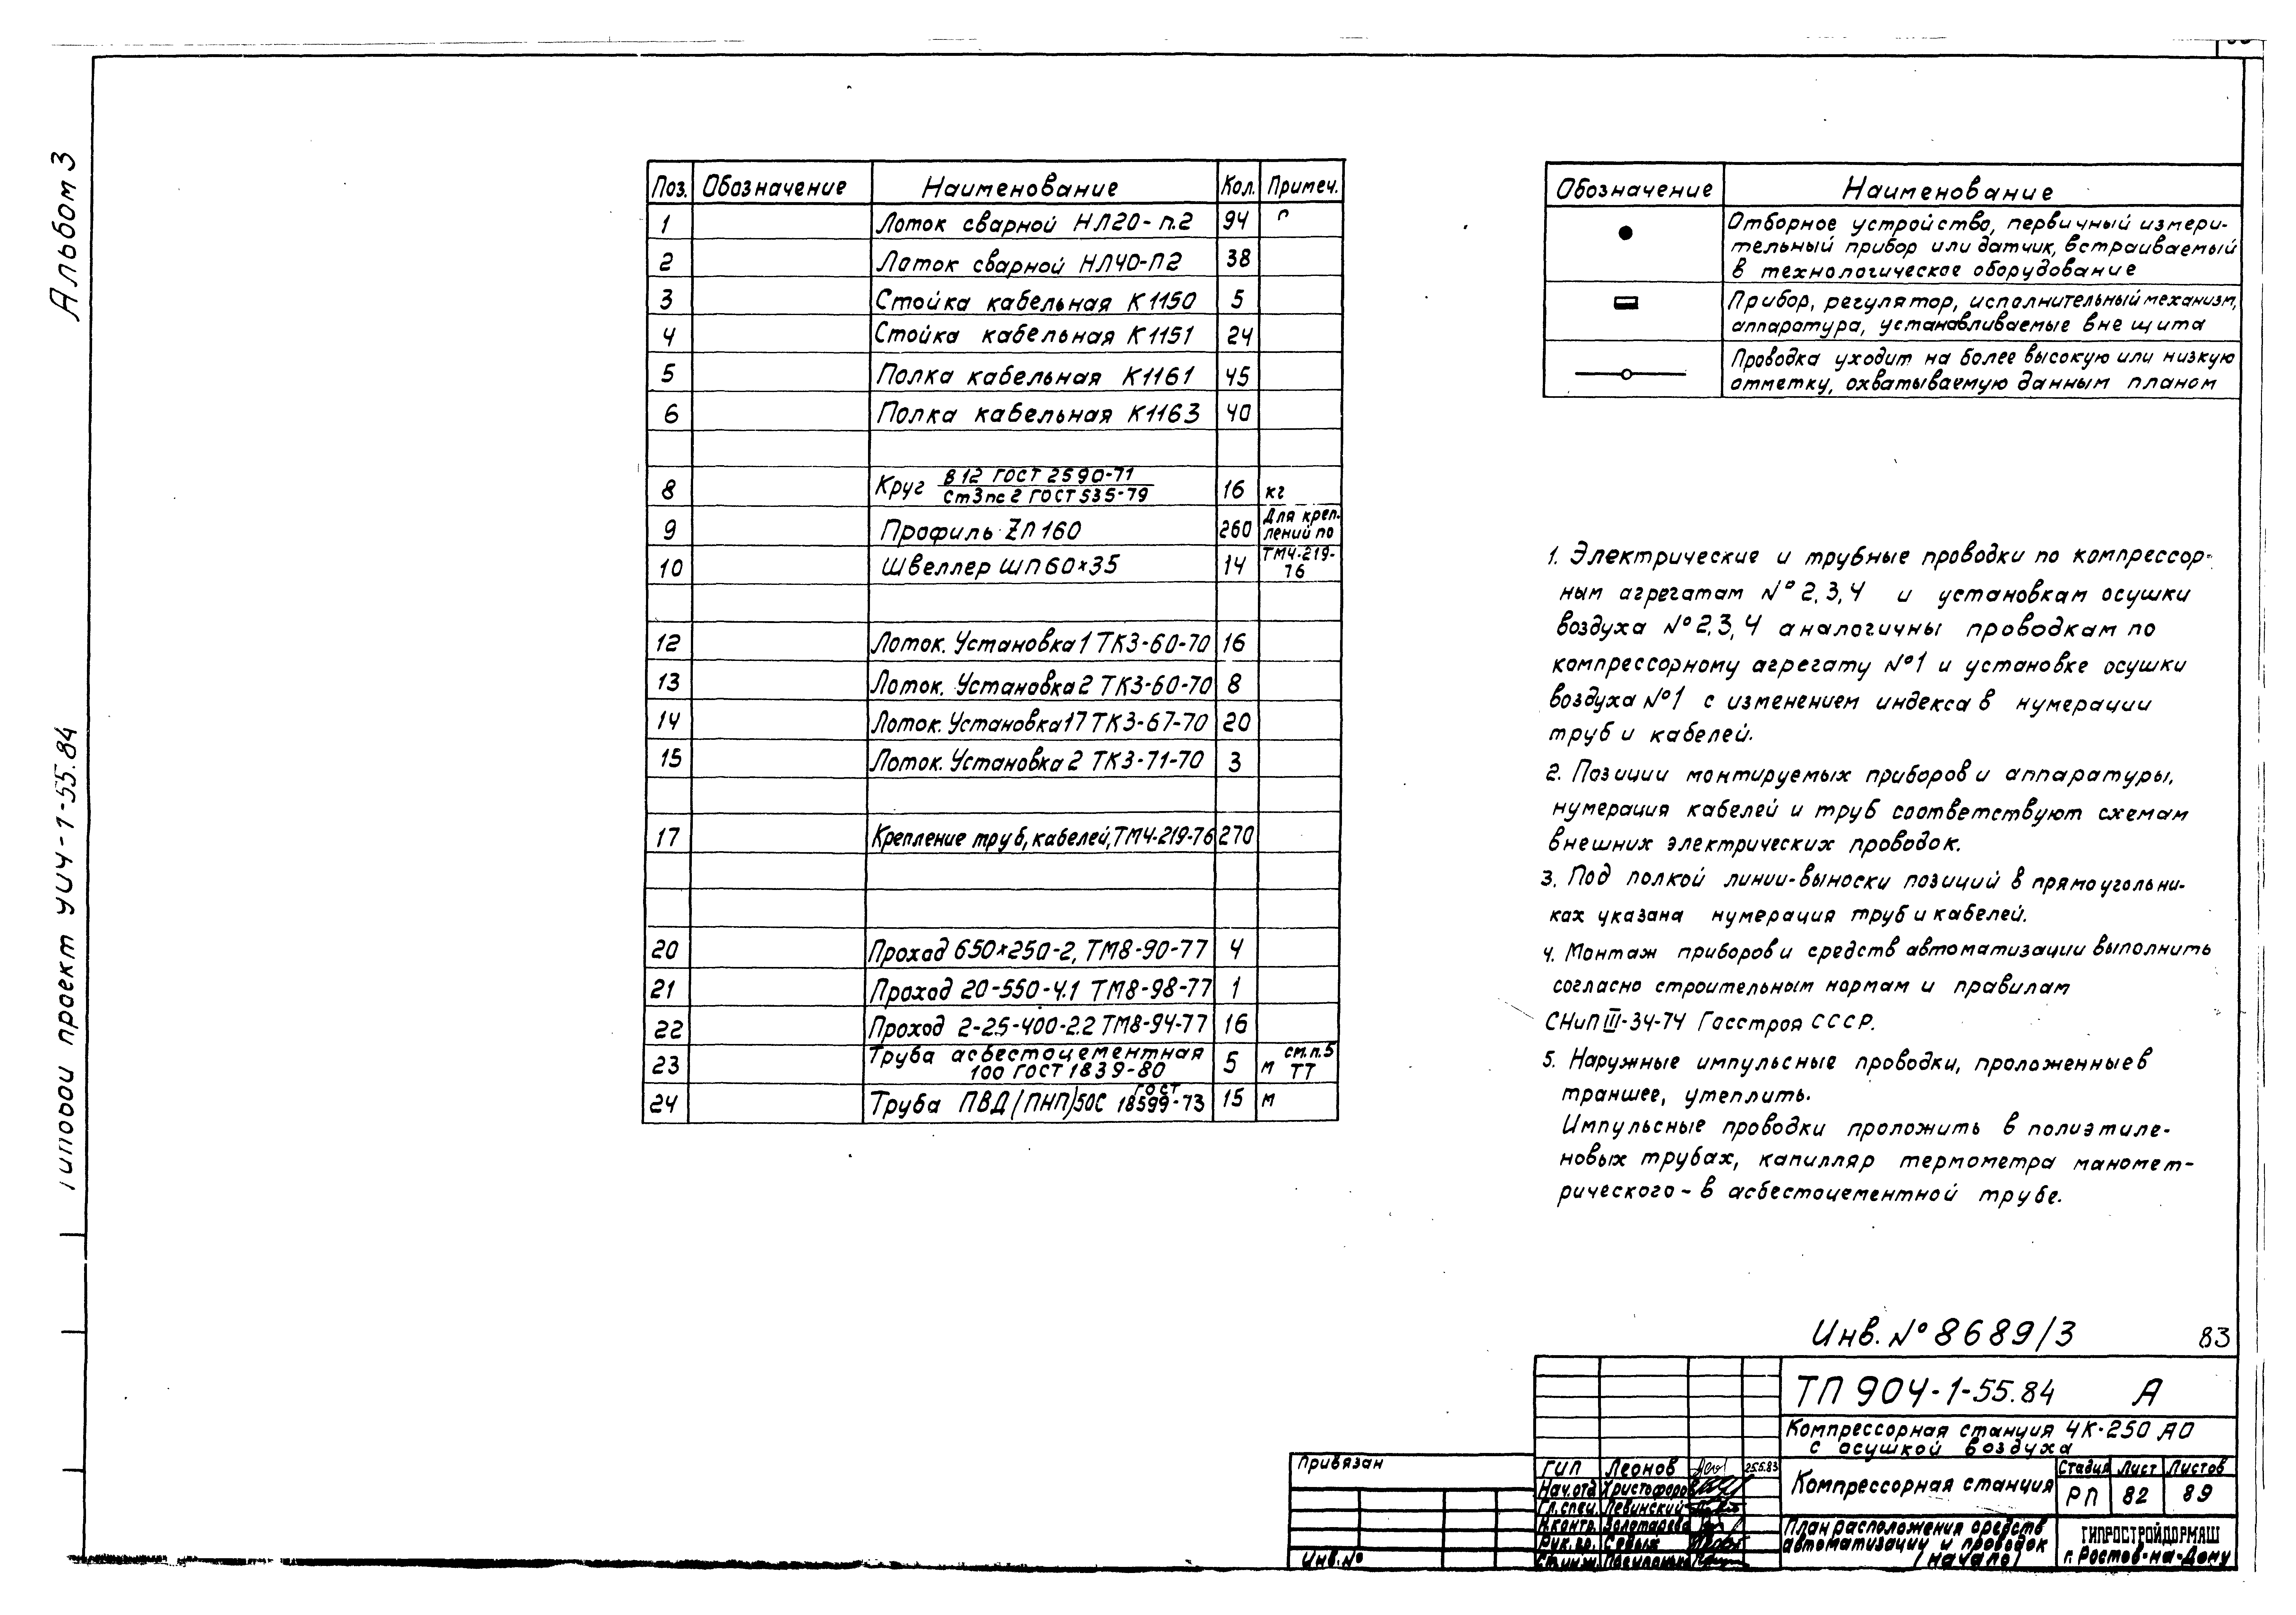 Альбом 3
Типовой проект УИЧ-1-55.84
Поз. Обозначение Наименование Кол. Примеч.
1 Лоток сварной НЛ20-п.2 94
2 Лоток сварной НЛ40-П2 38
3 Стойка кабельная К1150 5
4 Стойка кабельная К1151 24
5 Полка кабельная К1161 45
6 Полка кабельная К1163 40
8 Круг В12 ГОСТ 2590-71 16 кг
Ст3пс2 ГОСТ 535-79
9 Профиль ZП160 260 Для креп-
лений по
10 Швеллер ШП60×35 14 ТМ4-219-
76
12 Лоток. Установка 1 ТК3-60-70 16
13 Лоток. Установка 2 ТК3-60-70 8
14 Лоток. Установка 17 ТК3-67-70 20
15 Лоток. Установка 2 ТК3-71-70 3
17 Крепление труб, кабелей, ТМ4-219-76 270
20 Проход 650×250-2, ТМ8-90-77 4
21 Проход 20-550-4.1 ТМ8-98-77 1
22 Проход 2-25-400-2.2 ТМ8-94-77 16
23 Труба асбестоцементная 5 м см.п.5
100 ГОСТ 1839-80 ТТ
24 Труба ПВД(ПНП)50С ГОСТ 18599-73 15 м
Обозначение Наименование
Отборное устройство, первичный измери-
тельный прибор или датчик, встраиваемый
в технологическое оборудование
Прибор, регулятор, исполнительный механизм,
аппаратура, устанавливаемые вне щита
Проводка уходит на более высокую или низкую
отметку, охватываемую данным планом
1. Электрические и трубные проводки по компрессор-
ным агрегатам №2,3,4 и установкам осушки
воздуха №2,3,4 аналогичны проводкам по
компрессорному агрегату №1 и установке осушки
воздуха №1 с изменением индекса в нумерации
труб и кабелей.
2. Позиции монтируемых приборов и аппаратуры,
нумерация кабелей и труб соответствуют схемам
внешних электрических проводок.
3. Под полкой линии-выноски позиций в прямоугольни-
ках указана нумерация труб и кабелей.
4. Монтаж приборов и средств автоматизации выполнить
согласно строительным нормам и правилам
СНиП III-34-74 Госстроя СССР.
5. Наружные импульсные проводки, проложенные в
траншее, утеплить.
Импульсные проводки проложить в полиэтиле-
новых трубах, капилляр термометра маномет-
рического - в асбестоцементной трубе.
Инв. № 8689/3 83
ТП 904-1-55.84 А
Компрессорная станция 4К-250 АО
с осушкой воздуха
Привязан
Инв.№
ГИП Леонов 25.5.83
Нач.отд. Христофоров
Гл.спец. Левинский
Н.контр. Золотарева
Рук.гр. Севых
Ст.инж.
Компрессорная станция
Стадия Лист Листов
РП 82 89
План расположения средств
автоматизации и проводок
(начало)
ГИПРОСТРОЙДОРМАШ
г. Ростов-на-Дону